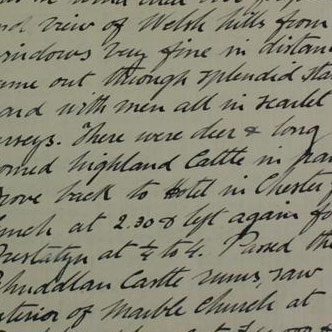 nd view of Welsh hills from
windows very fine in distan
ame out through splendid sta
ard with men all in scarlet
erseys. There were deer & long
orned highland Cattle in par
rove back to Hotel in Chester,
unch at 2.30 & left again f
Prestatyn at ¼ to 4. Passed the
Rhuddlan Castle ruins, saw
nterior of Marble Church at